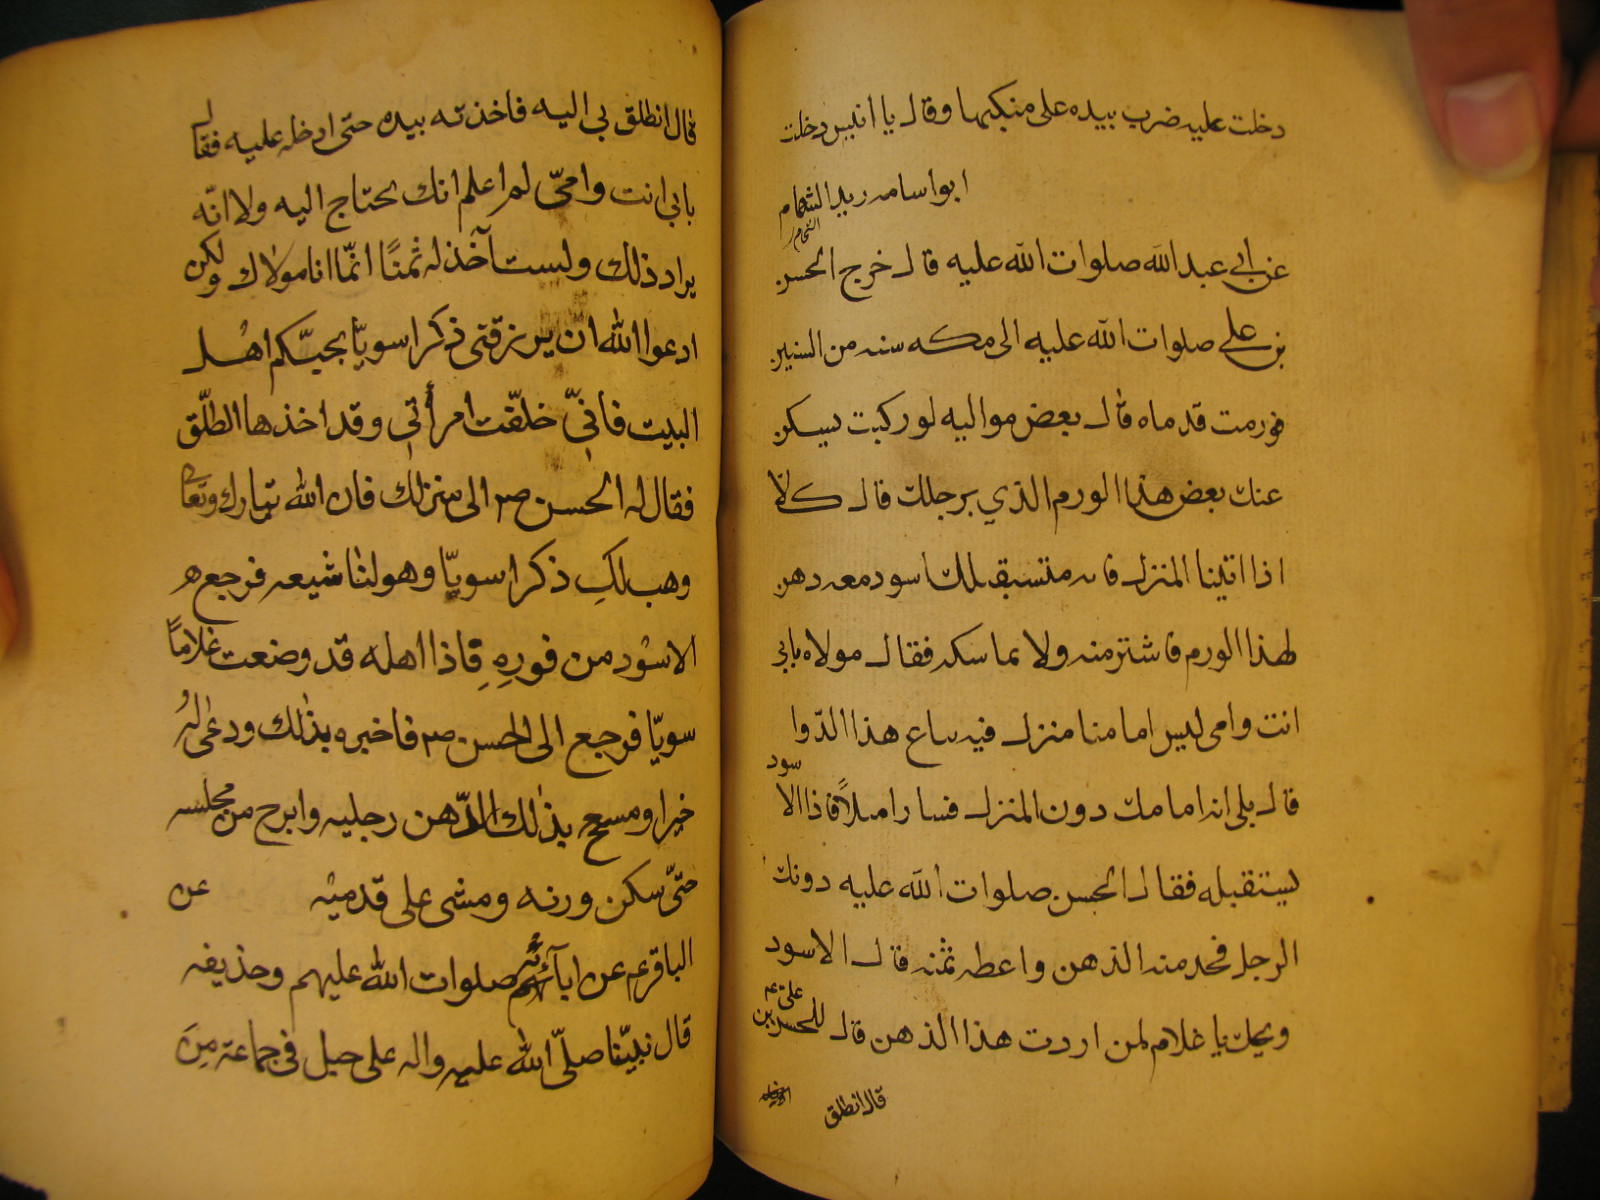 دخلت عليه ضرب بيده على منكبيها وقال يا انيس دخلت
ابو اسامه زيد الشمام
الشحام
عن ابي عبد الله صلوات الله عليه قال خرج الحسن
بن علي صلوات الله عليه الى مكه سنه من السنين
فورمت قدماه قال بعض مواليه لو ركبت يسكن
عنك بعض هذا الورم الذي برجلك قال كلا
اذا اتينا المنزل فانه متسقبلك اسود معه دهن
لهذا الورم فاشتر منه ولا تماسكه فقال مولاه بابي
انت وامي ليس امامنا منزل فيه يباع هذا الدوا
قال بلى انه امامك دون المنزل فسارا ميلاً فاذا الا
سود
يستقبله فقال الحسن صلوات الله عليه دونك
الرجل فخد منه الذهن واعطه ثمنه قال الاسود
ويحك يا غلام لمن اردت هذا الذهن قال للحسن بن
علي عم
قال انطلق
قال انطلق بي اليه فاخذته بيده حتى ادخله عليه فقال
بابي انت وامّي لم اعلم انك تحتاج اليه ولا انّه
يراد ذلك ولست آخذ له ثمنًا انّما انا مولاك ولكن
ادعوا الله ان يرزقني ذكرا سويّا يحبّكم اهل
البيت فانّي خلّفت امرأتي وقد اخذها الطّلق
فقال له الحسن صم الى منزلك فان الله تبارك وتعا
وهب لكِ ذكرا سويّا وهو لنا شيعه فرجع
الاسود من فورهِ فاذا اهله قد وضعت غلامًا
سويّا فرجع الى الحسن صم فاخبره بذلك ودعى لهُ
خيرا ومسح بذلك الدّهن رجليه وابرح من مجلسه
حتّى سكن ورنه ومشى على قدميه عن
الباقر عم عن ابآئهم صلوات الله عليهم وحذيفه
قال نبيّنا صلّى الله عليه واله على جبل في جماعة مِنَ